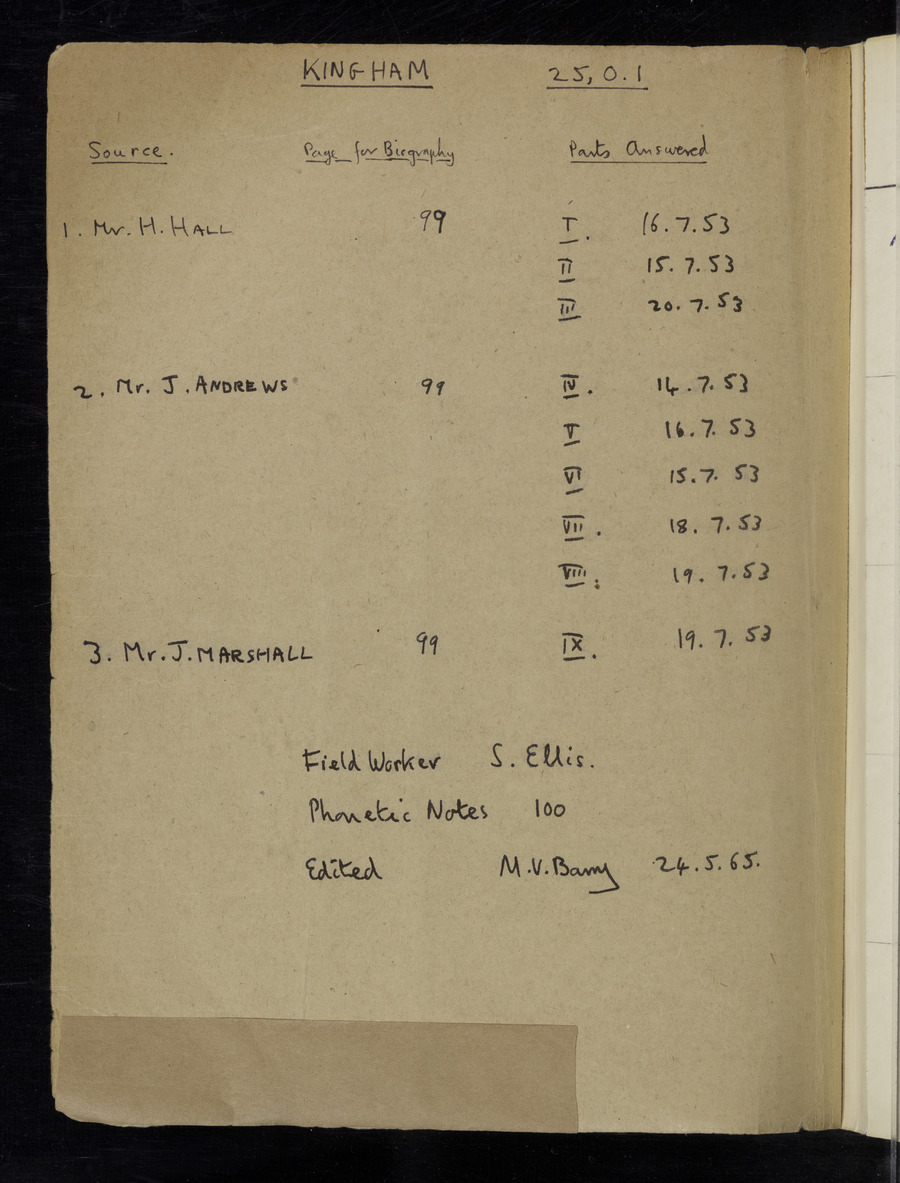 KINGHAM 25, O.1
Source. Page for Biography Parts Answered
1. Mr. H. HALL 99 I. 16.7.53
II 15.7.53
III 20.7.53
2. Mr. J. ANDREWS 99 IV. 14.7.53
V 16.7.53
VI 15.7.53
VII. 18.7.53
VIII. 19.7.53
3. Mr. J. MARSHALL 99 IX. 19.7.53
Field Worker S. Ellis.
Phonetic Notes 100
Edited M.V. Barry 24.5.65.